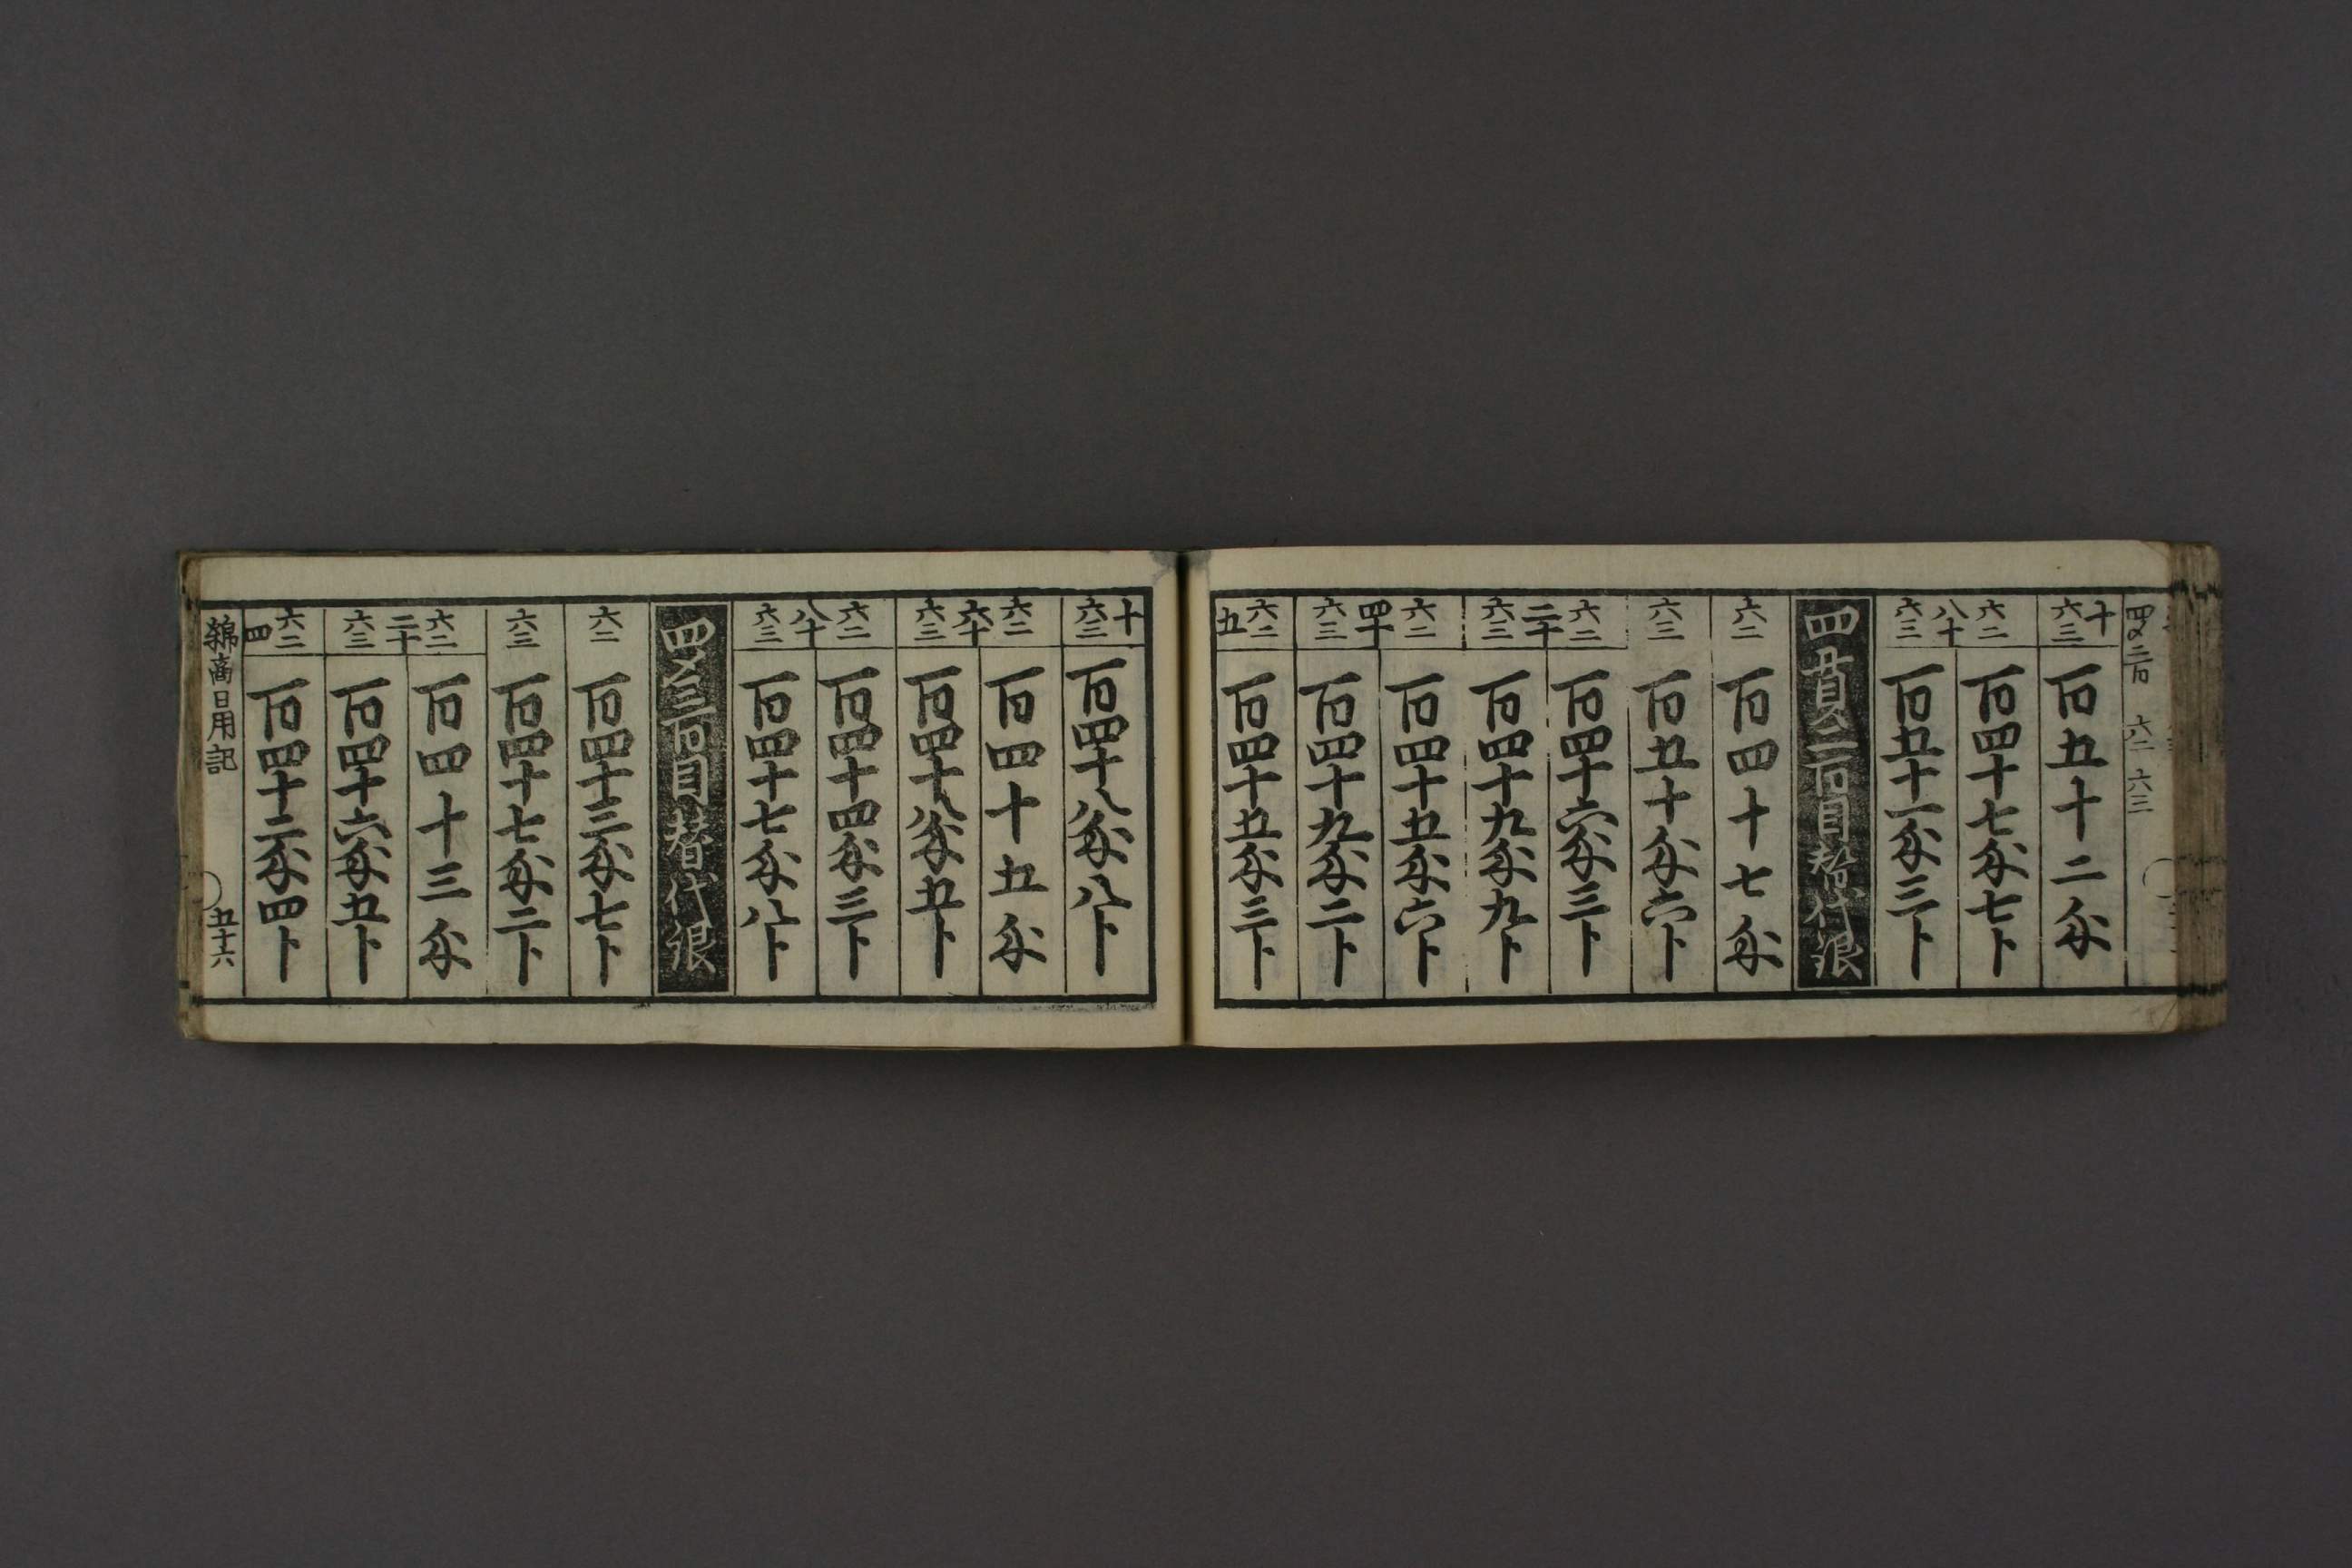 四〆三百 六二 六三
十 六三 百五十二匁
八十 六二 百四十七匁七卜
六三 百五十一匁三卜
四貫二百目替代銀
六二 百四十七匁
六三 百五十匁六卜
二十 六二 百四十六匁三卜
六三 百四十九匁九卜
四十 六二 百四十五匁六卜
六三 百四十九匁二卜
五 六二 百四十五匁三卜
十 六三 百四十八匁八卜
六十 六二 百四十五匁
六三 百四十八匁五卜
八十 六二 百四十四匁三卜
六三 百四十七匁八卜
四〆三百目替代銀
六二 百四十三匁七卜
六三 百四十七匁二卜
二十 六二 百四十三匁
六三 百四十六匁五卜
四 六二 百四十二匁四卜
商日用記 五十六